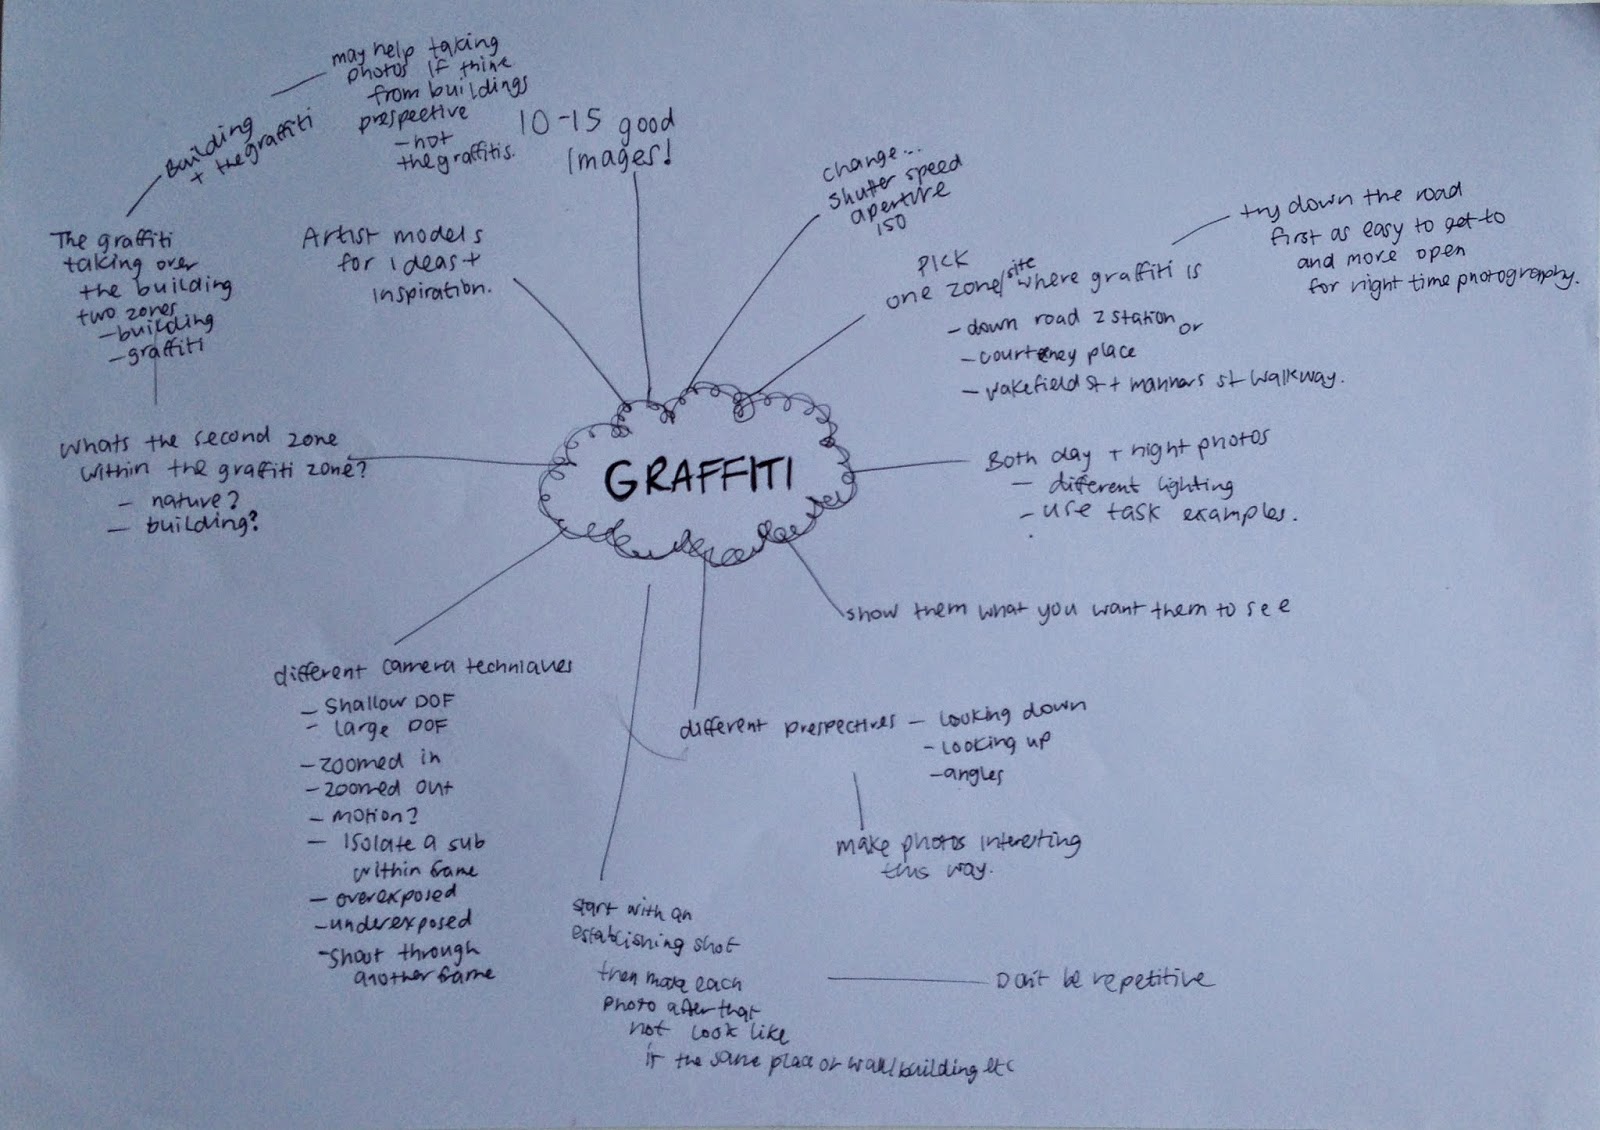 GRAFFITI
10-15 good
Images!
change...
shutter speed
aperture
ISO
PICK
one zone/site where graffiti is
- down road 2 station or
- courteney place
- wakefield st + manners st walkway.
try down the road
first as easy to get to
and more open
for night time photography.
Both day + night photos
- different lighting
- use task examples.
show them what you want them to see
different prespectives - looking down
- looking up
- angles
make photos interesting
this way.
start with an
establishing shot
then make each
photo after that
not look like
it the same place or wall/building etc
Don't be repetitive
different camera techniques
- Shallow DOF
- large DOF
- zoomed in
- zoomed out
- motion?
- Isolate a sub
within frame
- overexposed
- underexposed
- Shoot through
another frame
Whats the second zone
within the graffiti zone?
- nature?
- building?
The graffiti
taking over
the building
two zones
- building
- graffiti
Building
+ the graffiti
may help taking
photos if thine
from buildings
prespective
- not
the graffitis.
Artist models
for ideas +
inspiration.